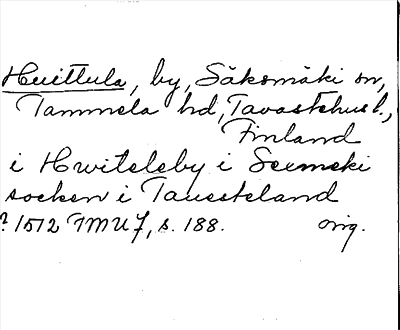 Huittula, by, Säksmäki sn,
Tammela hd, Tavastehus l.,
Finland
i Hwiteleby i Seemeki
socken i Tauesteland
? 1512 FMU 7, s. 188. orig.